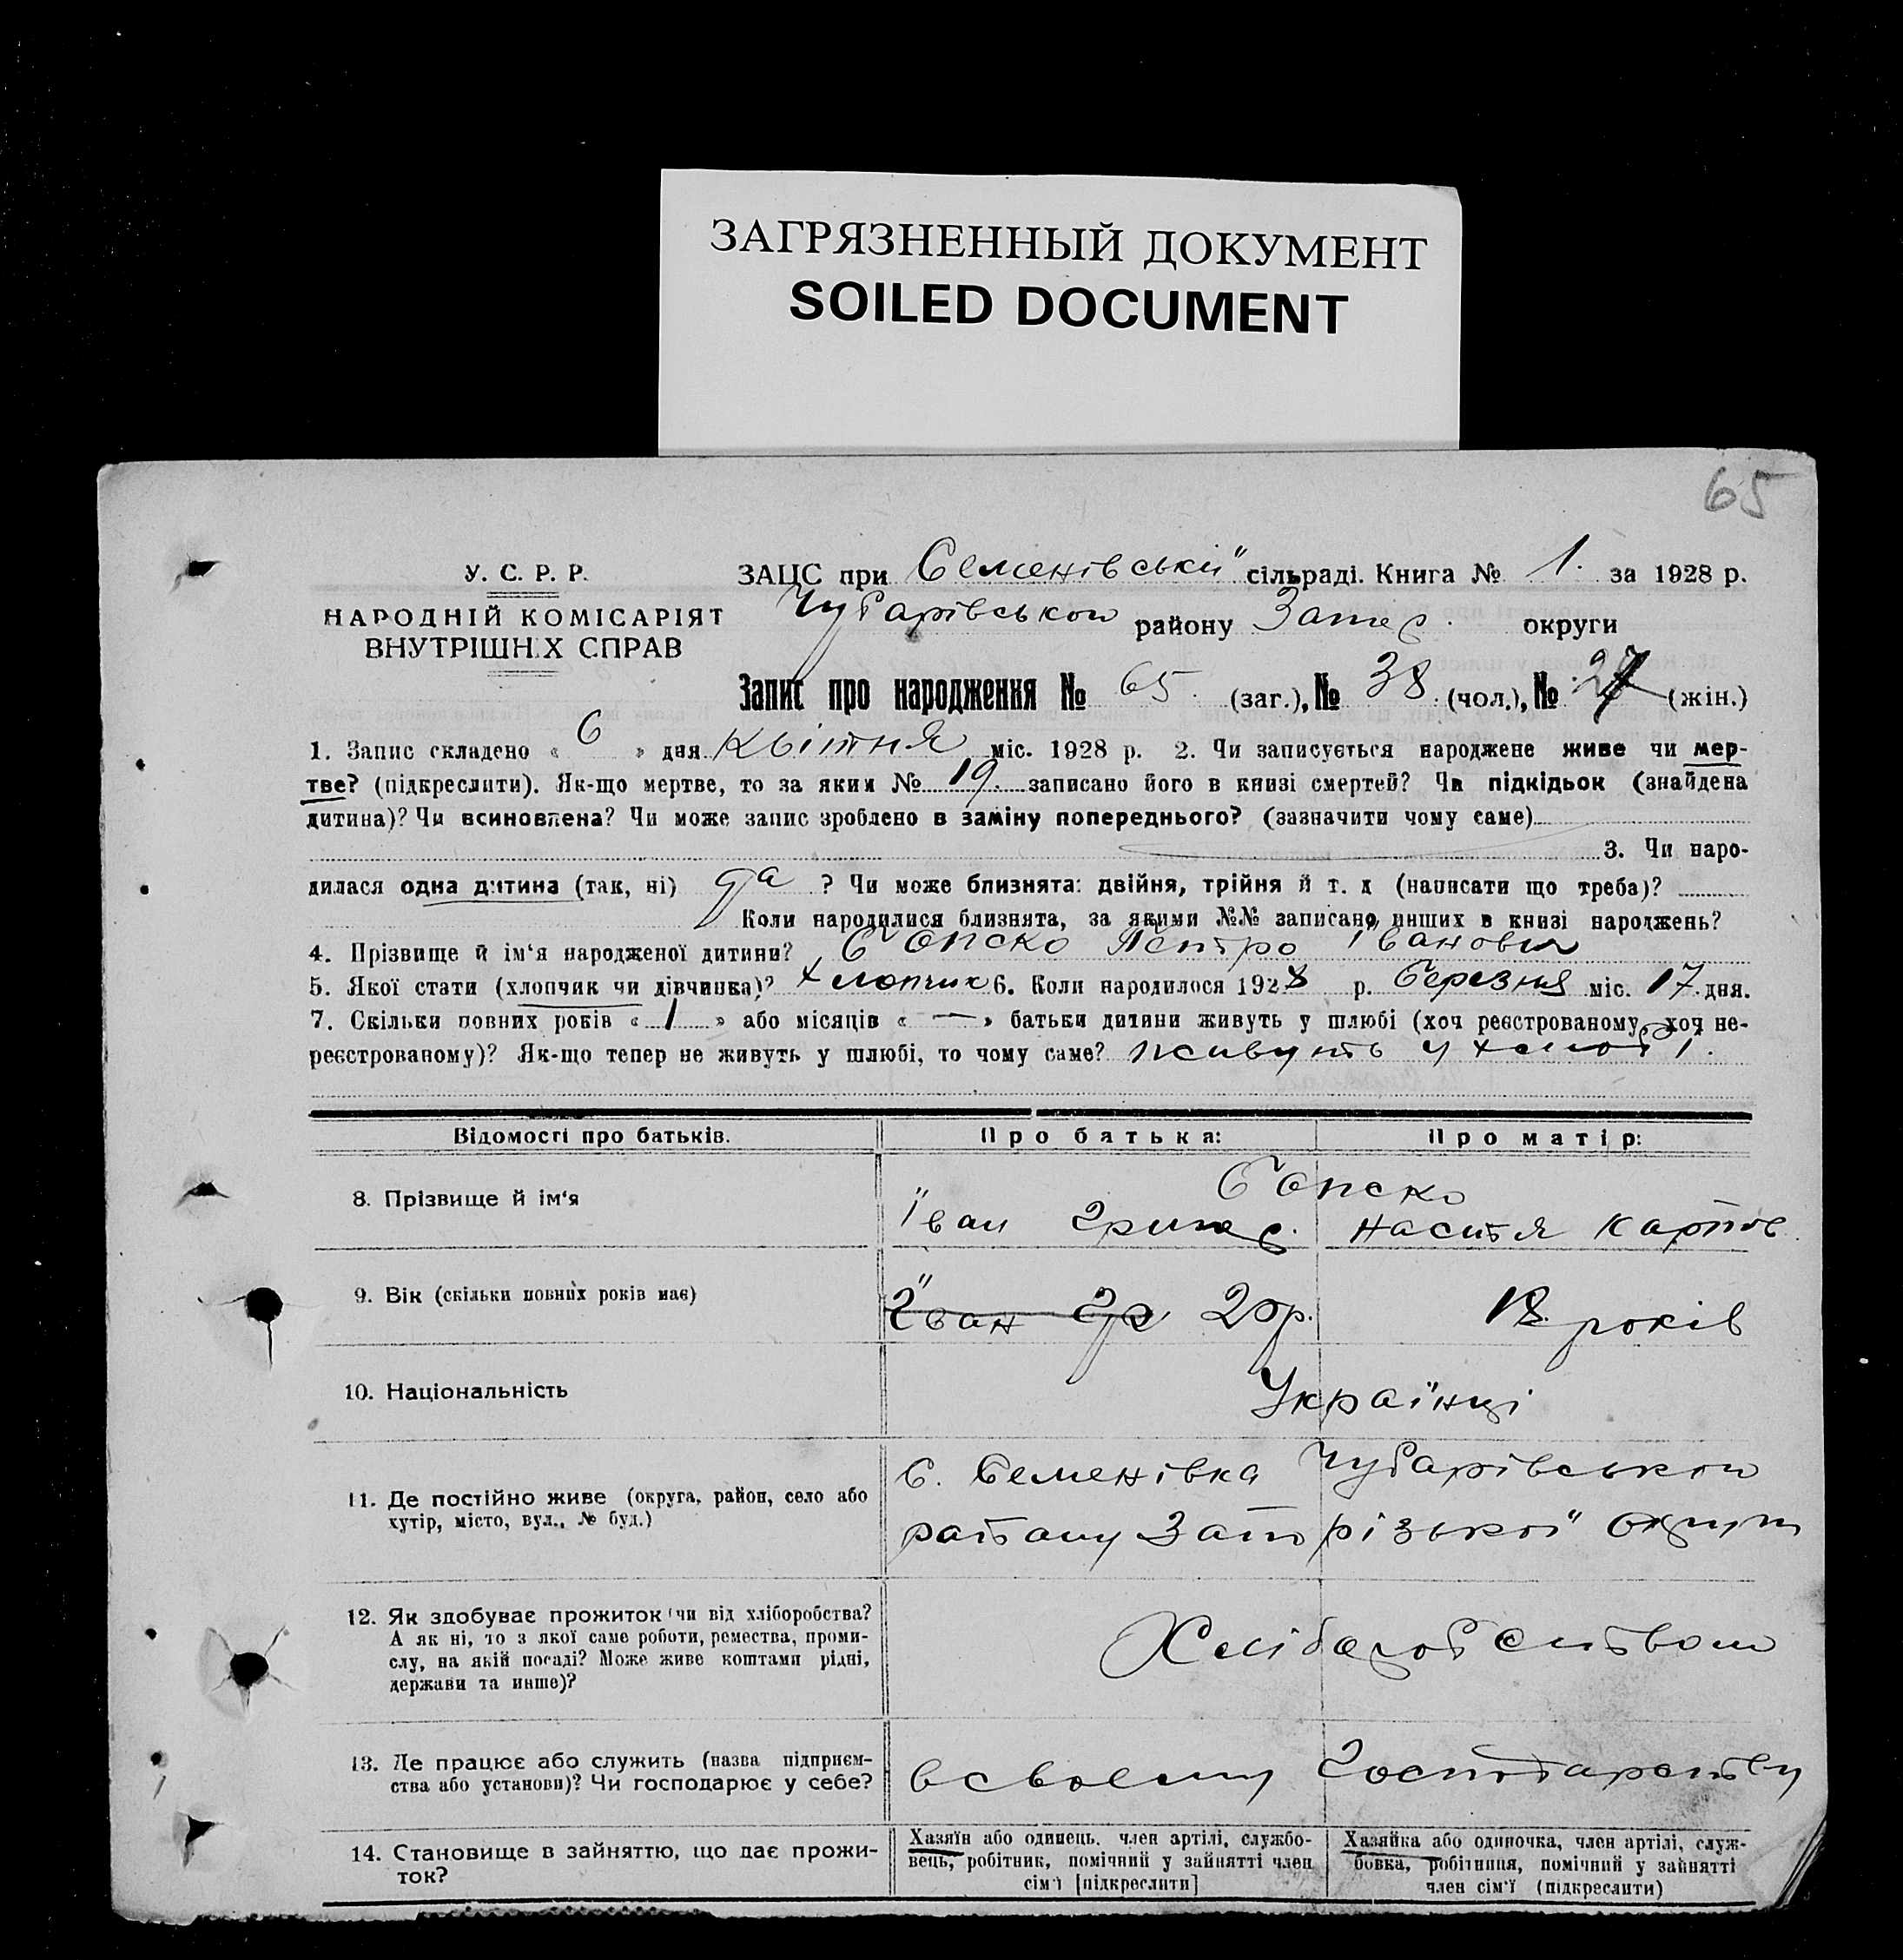 ЗАГРЯЗНЕННЫЙ ДОКУМЕНТ
SOILED DOCUMENT
65
У. С. Р. Р.
НАРОДНІЙ КОМІСАРІЯТ
ВНУТРІШН.Х СПРАВ
ЗАЦС при Семенівській сільраді. Книга № 1. за 1928 р.
Чубарівського району Запор. округи
Запис про народження № 65. (заг.), № 38 (чол.), № 27 (жін.)
1. Запис складено « 6 » дня Квітня міс. 1928 р. 2. Чи записується народжене живе чи мер-
тве? (підкреслити). Як-що мертве, то за яким № 19 записано його в книзі смертей? Чи підкідьок (знайдена
дитина)? Чи всиновлена? Чи може запис зроблено в заміну попереднього? (зазначити чому саме)
3. Чи наро-
дилася одна дитина (так, ні) да ? Чи може близнята: двійня, трійня й т. д (написати що треба)?
Коли народилися близнята, за якими №№ записано инших в книзі народжень?
4. Прізвище й ім'я народженої дитини? Петро Іванович
5. Якої стати (хлопчик чи дівчинка)? Хлопчик 6. Коли народилося 1928 р. Березня міс. 17 дня.
7. Скільки повних років « 1 » або місяців « — » батьки дитини живуть у шлюбі (хоч реєстрованому, хоч не-
реєстрованому)? Як-що тепер не живуть у шлюбі, то чому саме? живуть у
Відомості про батьків. Про батька: Про матір:
8. Прізвище й ім'я
Іван Григор. Настя Карпов
9. Вік (скільки повних років має) Іван Гр 20р. 18. років
10. Національність Українці
11. Де постійно живе (округа, район, село або
хутір, місто, вул., № буд.)
С. Семенівка Чубарівського
району Запорізької округи
12. Як здобуває прожиток (чи від хліборобства?
А як ні, то з якої саме роботи, ремества, проми-
слу, на якій посаді? Може живе коштами рідні,
держави та инше)?
Хліборобством
13. Де працює або служить (назва підприєм-
ства або установи)? Чи господарює у себе?
в своєму господарству
14. Становище в зайняттю, що дає прожи-
ток?
Хазяїн або одинець, член артілі, службо-
вець, робітник, помічний у зайнятті член
сім'ї [підкреслити]
Хазяйка або одиночка, член артілі, служ-
бовка, робітниця, помічний у зайнятті
член сім'ї (підкреслити)